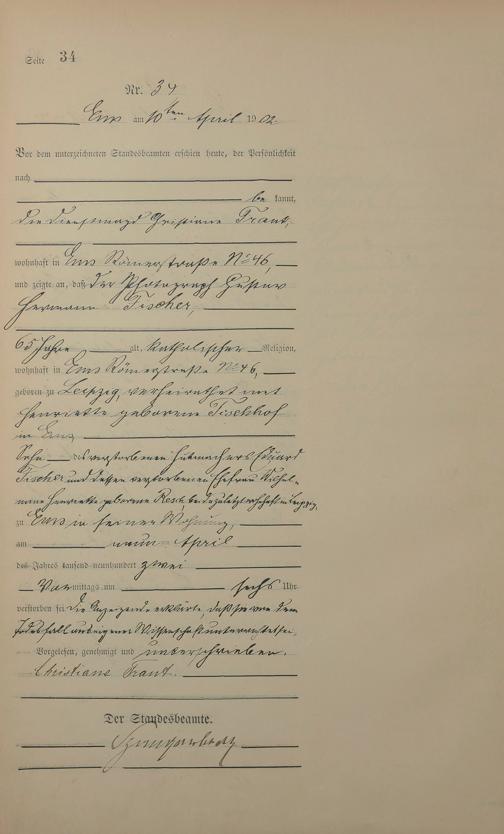 Seite 34
Nr. 34
Ems am 10ten April 1902.
Vor dem unterzeichneten Standesbeamten erschien heute, der Persönlichkeit
nach
be kannt,
die Dienstmagd Christiane Traut,
wohnhaft in Ems Römerstraße No 46,
und zeigte an, daß der Photograph Gustav
Hermann Fischer,
65 Jahre alt, katholischer Religion,
wohnhaft in Ems Römerstraße No 46,
geboren zu Leipzig, verheirathet mit
Henriette geborene Fischhof
in Ems
Sohn des verstorbenen Hutmachers Eduard
Fischer und dessen verstorbenen Ehefrau Wilhel-
mine Henriette geborene Resch, beide zuletzt wohnhaft in Leipzig,
zu Ems in seiner Wohnung,
am neun April
des Jahres tausend neunhundert zwei
Vor mittags um sechs Uhr
verstorben sei. Die Anzeigende erklärte, daß sie von dem
Todesfall aus eigener Wissenschaft unterrichtet sei.
Vorgelesen, genehmigt und unterschrieben.
Christiane Traut.
Der Standesbeamte.